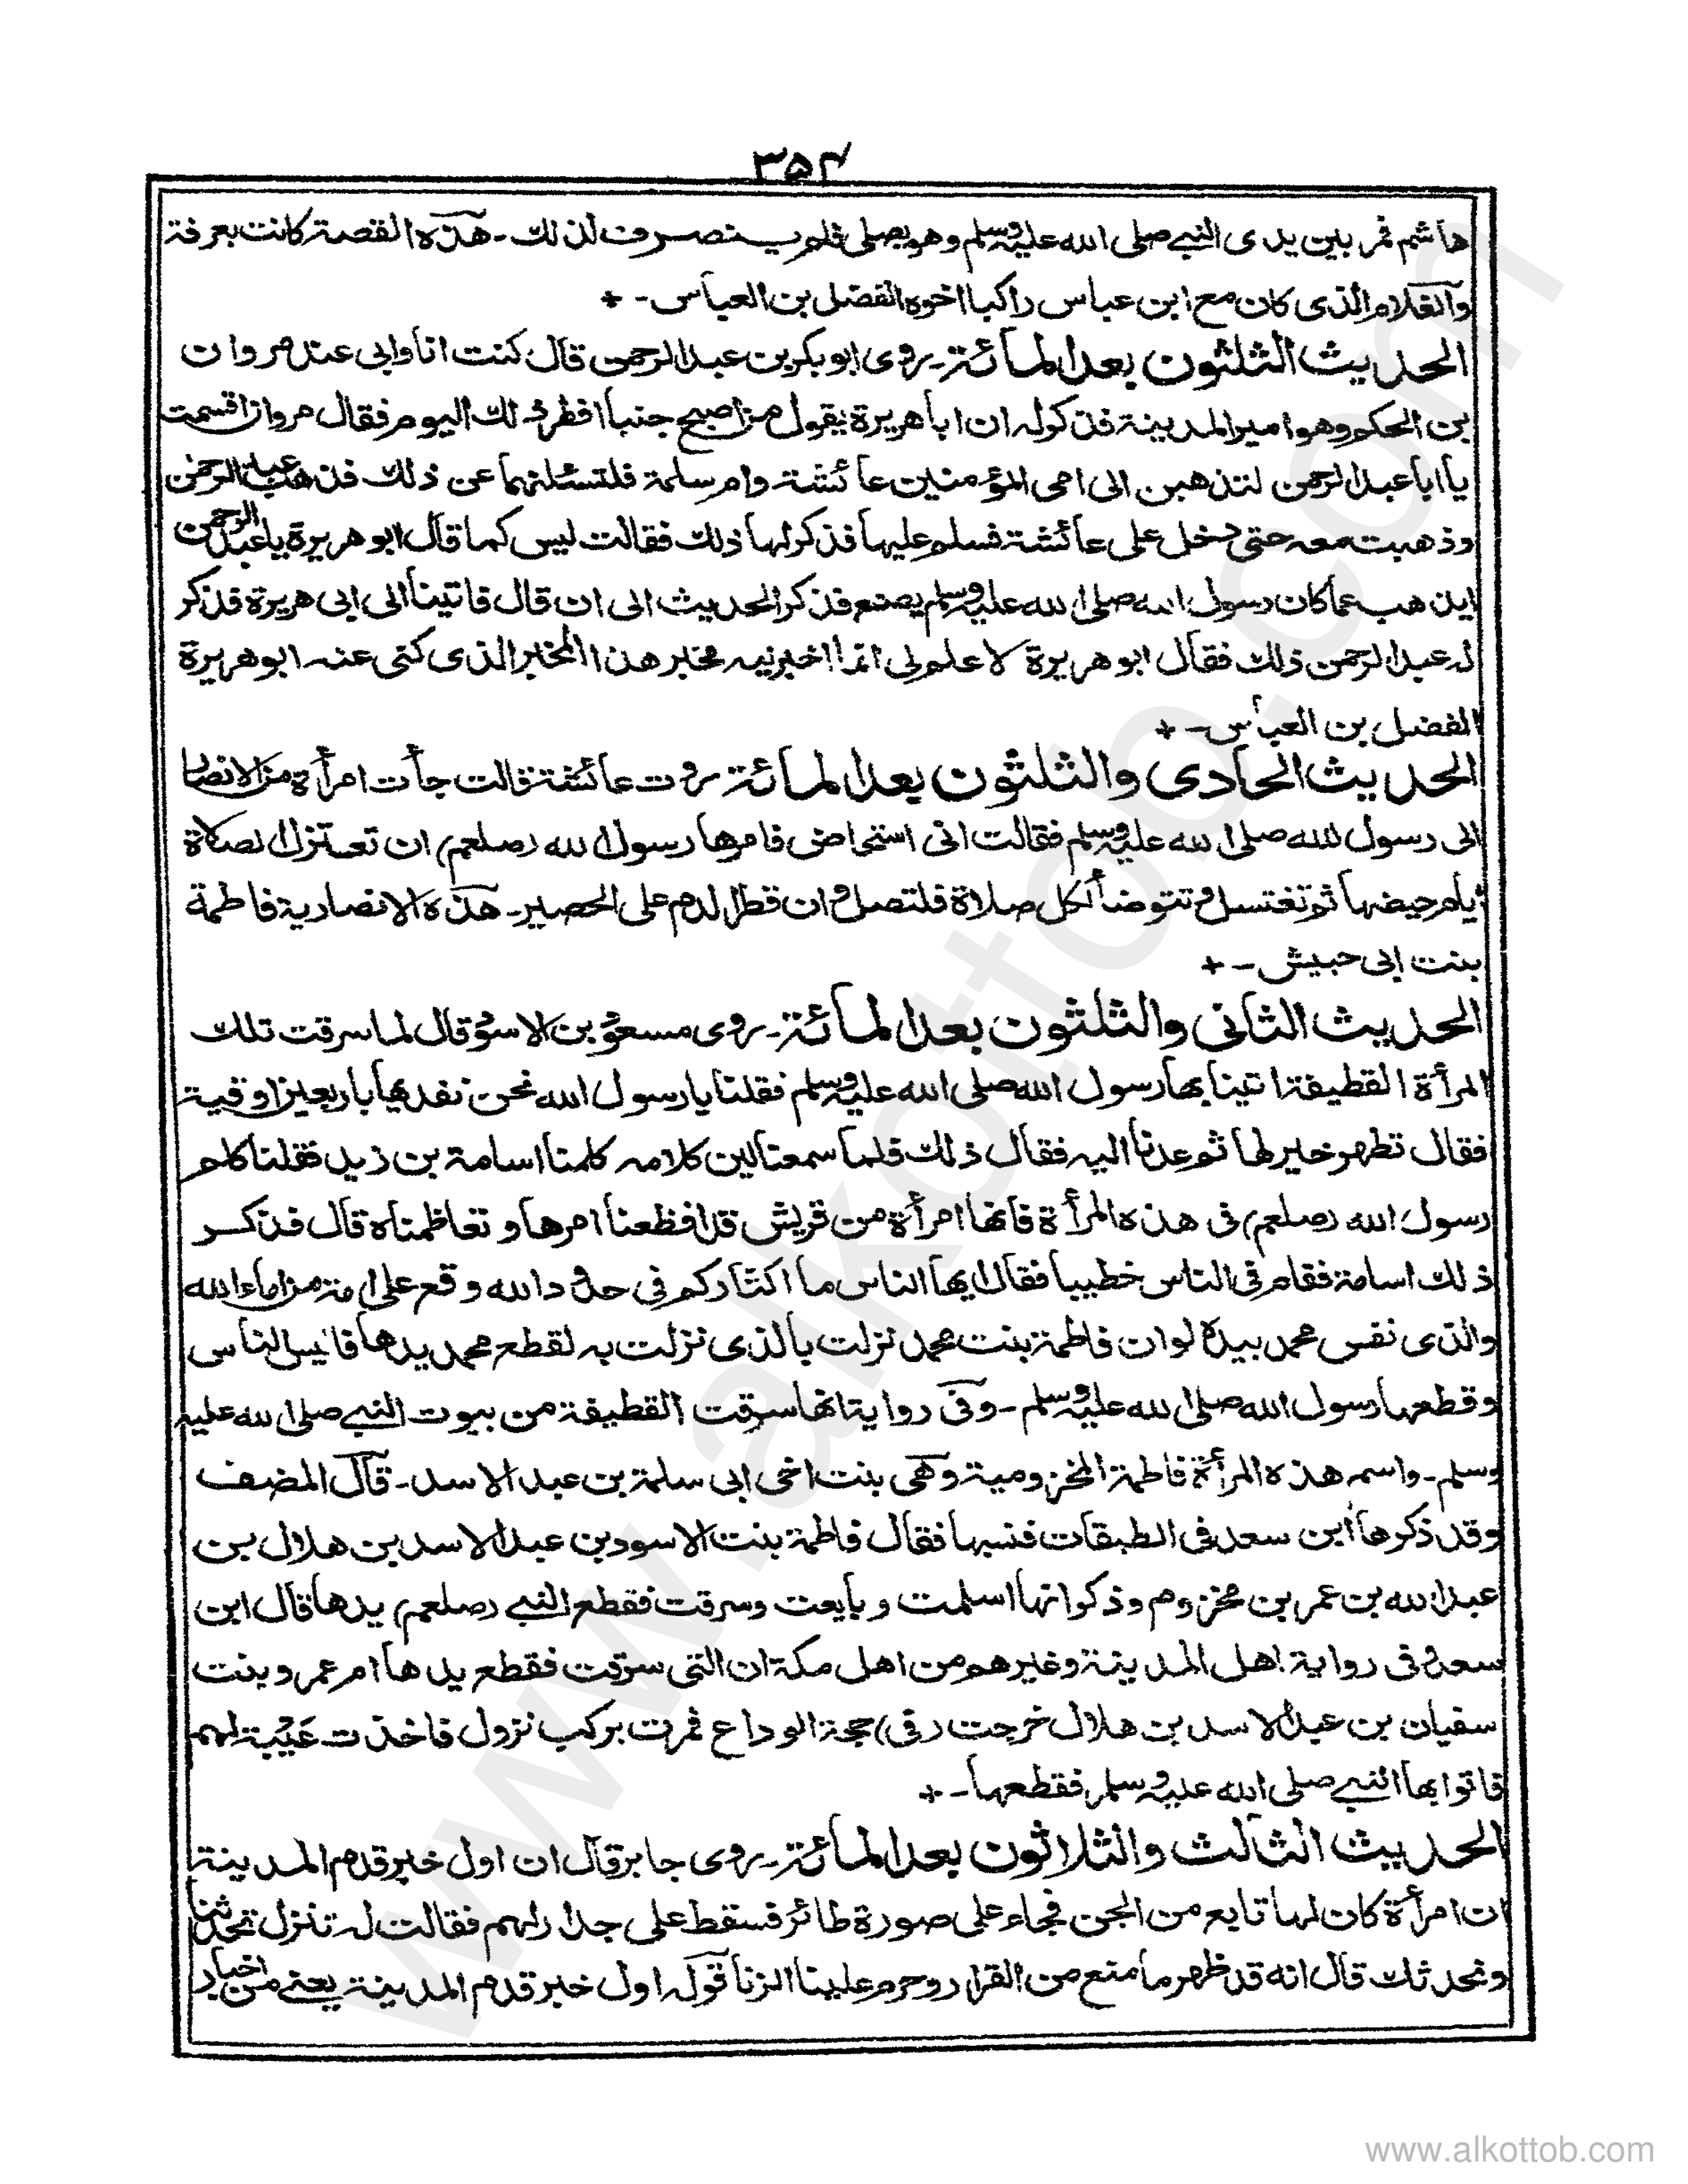 ۳۵۴
هاشم فمر بين يدي النبي صلى الله عليه وسلم وهو يصلي فلم ينصرف لذلك - هذه القصة كانت بعرفة
والغلام الذي كان مع ابن عباس راكبا اخوه الفضل بن العباس - +
الحديث الثلثون بعد المائة - روى ابو بكر بن عبد الرحمن قال كنت انا وابي عند مروان
بن الحكم وهو امير المدينة فذكر له ان ابا هريرة يقول من اصبح جنبا افطر ذلك اليوم فقال مروان اقسمت
يا ابا عبد الرحمن لتذهبن الى امي المؤمنين عائشة وام سلمة فلتسئلنهما عن ذلك فذهب عبد الرحمن
وذهبت معه حتى دخل على عائشة فسلم عليها فذكر لها ذلك فقالت ليس كما قال ابو هريرة يا عبد الرحمن
اين هب عما كان رسول الله صلى الله عليه وسلم يصنع فذكر الحديث الى ان قال فاتينا الى ابي هريرة فذكر
له عبد الرحمن ذلك فقال ابو هريرة لا علم لي انما اخبرنيه مخبر هذا المخبر الذي كنى عنه ابو هريرة
الفضل بن العباس - +
الحديث الحادي والثلثون بعد المائة روت عائشة قالت جأت امرأة من الانصار
الى رسول الله صلى الله عليه وسلم فقالت اني استحاض فامرها رسول الله (صلعم) ان تعتزل الصلاة
ايام حيضها ثم تغتسل وتتوضأ لكل صلاة فلتصل وان قطر الدم على الحصير - هذه الانصارية فاطمة
بنت ابي حبيش - +
الحديث الثاني والثلثون بعد المائة - روى مسعود بن الاسود قال لما سرقت تلك
المرأة القطيفة اتينا بها رسول الله صلى الله عليه وسلم فقلنا يا رسول الله نحن نفديها باربعين اوقية
فقال تطهر خير لها ثم عدنا اليه فقال ذلك فلما سمعنا لين كلامه كلمنا اسامة بن زيد فقلنا كلم
رسول الله (صلعم) في هذه المرأة فانها امرأة من قريش قد افظعنا امرها وتعاظمناه قال فذكر
ذلك اسامة فقام في الناس خطيبا فقال ايها الناس ما اكثاركم في حدود الله وقع على امة من اماء الله
والذي نفس محمد بيده لو ان فاطمة بنت محمد نزلت بالذي نزلت به لقطع محمد يدها فائيس الناس
وقطعها رسول الله صلى الله عليه وسلم - وفي رواية انها سرقت القطيفة من بيوت النبي صلى الله عليه
وسلم - واسم هذه المرأة فاطمة المخزومية وهي بنت اخي ابي سلمة بن عبد الاسد - قال المصنف
وقد ذكرها ابن سعد في الطبقات فنسبها فقال فاطمة بنت الاسود بن عبد الاسد بن هلال بن
عبد الله بن عمر بن مخزوم وذكر انها اسلمت وبايعت وسرقت فقطع النبي (صلعم) يدها قال ابن
سعد وفي رواية اهل المدينة وغيرهم من اهل مكة ان التي سرقت فقطع يدها ام عمرو بنت
سفيان بن عبد الاسد بن هلال خرجت (في) حجة الوداع فمرت بركب نزول فاخذت عَيْبة لهم
فاتوا بها النبي صلى الله عليه وسلم فقطعها - +
الحديث الثالث والثلاثون بعد المائة - روى جابر قال ان اول خبر قدم المدينة
ان امرأة كان لها تابع من الجن فجاء على صورة طائر فسقط على جدار لهم فقالت له تنزل تحدثنا
ونحدثك قال انه قد ظهر ما منع من القرار وحرم علينا الزنا قوله اول خبر قدم المدينة يعني من اخبار
www.alkottob.com
www.alkottob.com